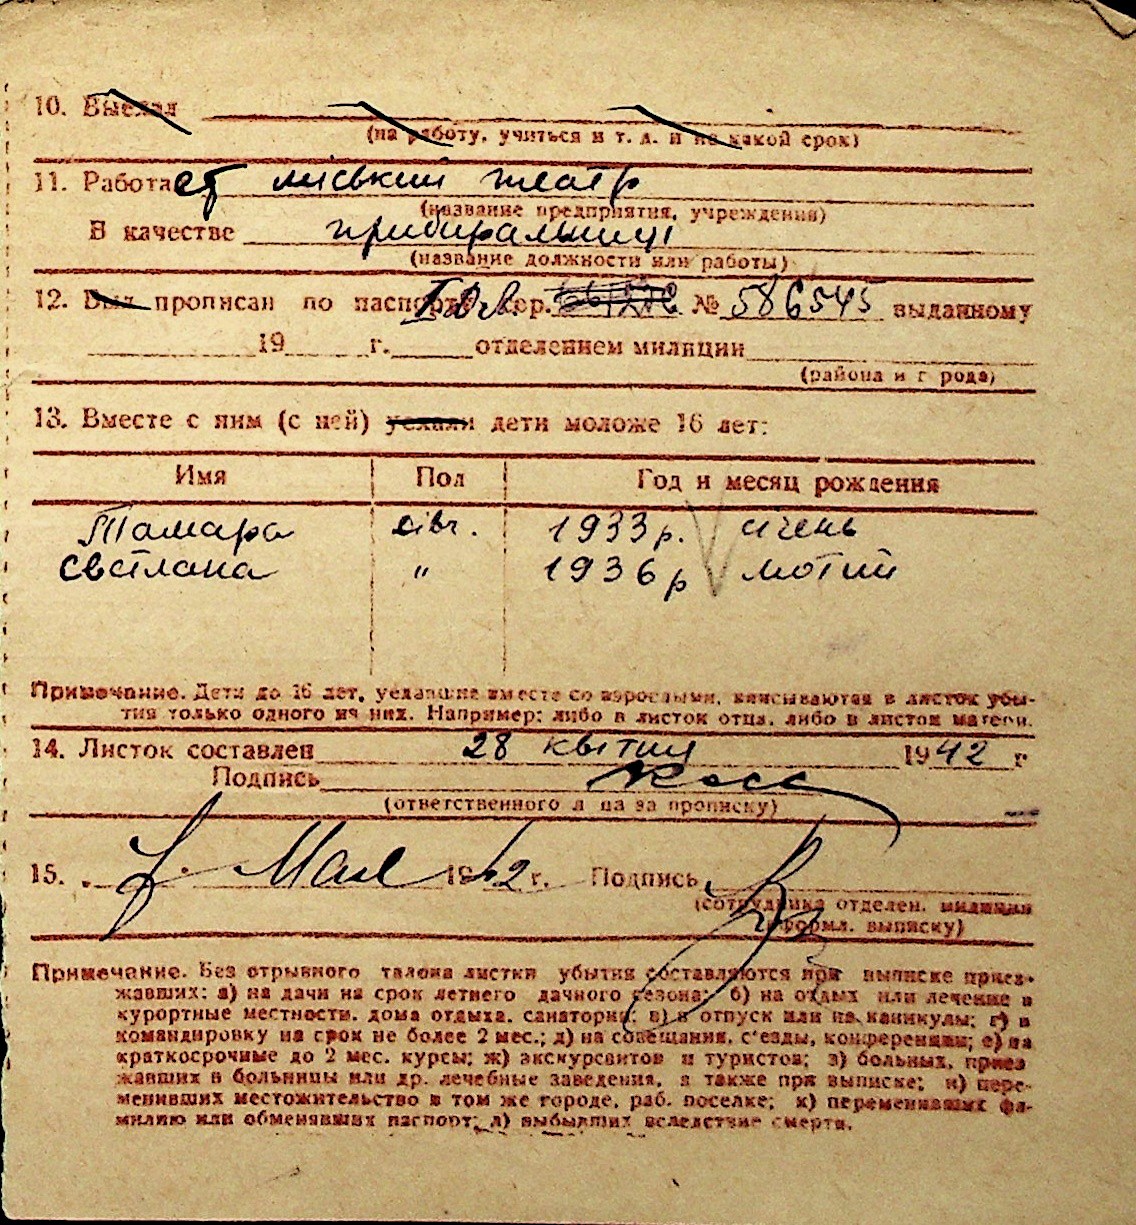 10. Выехал
(на работу, учиться и т. д. и на какой срок)
11. Работает міський театр
(название предприятия, учреждения)
В качестве прибиральниці
(название должности или работы)
12. Был прописан по паспорту сер. № 586545 выданному
19 г. отделением милиции
(района и г рода)
13. Вместе с ним (с ней) уехали дети моложе 16 лет:
Имя Пол Год и месяц рождения
Тамара дівч. 1933 р. січень
Світлана " 1936 р лютий
Примечание. Дети до 16 лет, уехавшие вместе со взрослыми, вписываются в листок убы-
тия только одного из них. Например: либо в листок отца, либо в листок матери.
14. Листок составлен 28 квітня 1942 г
Подпись
(ответственного л ца за прописку)
15. Мая 1942 г. Подпись
(сотрудника отделен. милиции
оформл. выписку)
Примечание. Без отрывного талона листки убытия составляются при выписке приез-
жавших: а) на дачи на срок летнего дачного сезона; б) на отдых или лечение в
курортные местности, дома отдыха, санатории; в) в отпуск или на каникулы; г) в
командировку на срок не более 2 мес.; д) на совещания, с'езды, конференции; е) на
краткосрочные до 2 мес. курсы; ж) экскурсантов и туристов; з) больных, приез
жавших в больницы или др. лечебные заведения, а также при выписке; и) пере-
менивших местожительство в том же городе, раб. поселке; к) переменивших фа-
милию или обменявших паспорт; л) выбывших вследствие смерти.